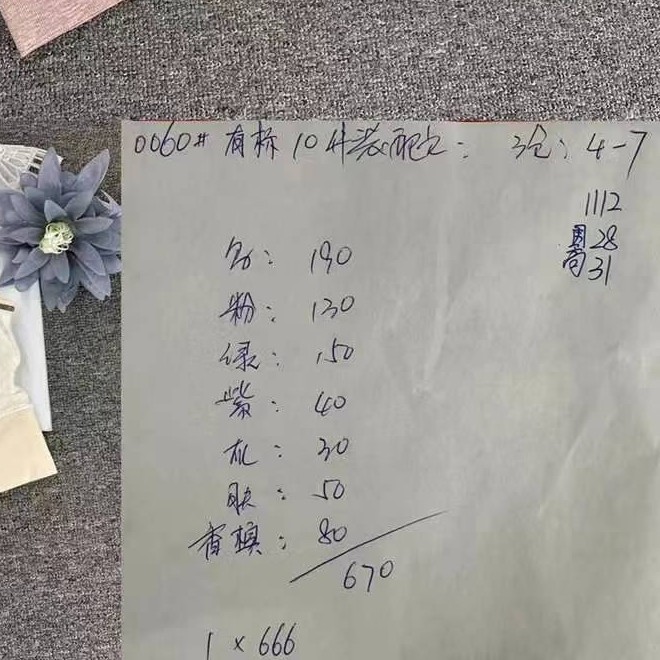 0060# 有标 10件装配比: 3包: 4-7
1112
周 28
高 31
: 190
粉: 130
绿: 150
紫: 40
: 30
肤: 50
香槟: 80
670
1 × 666